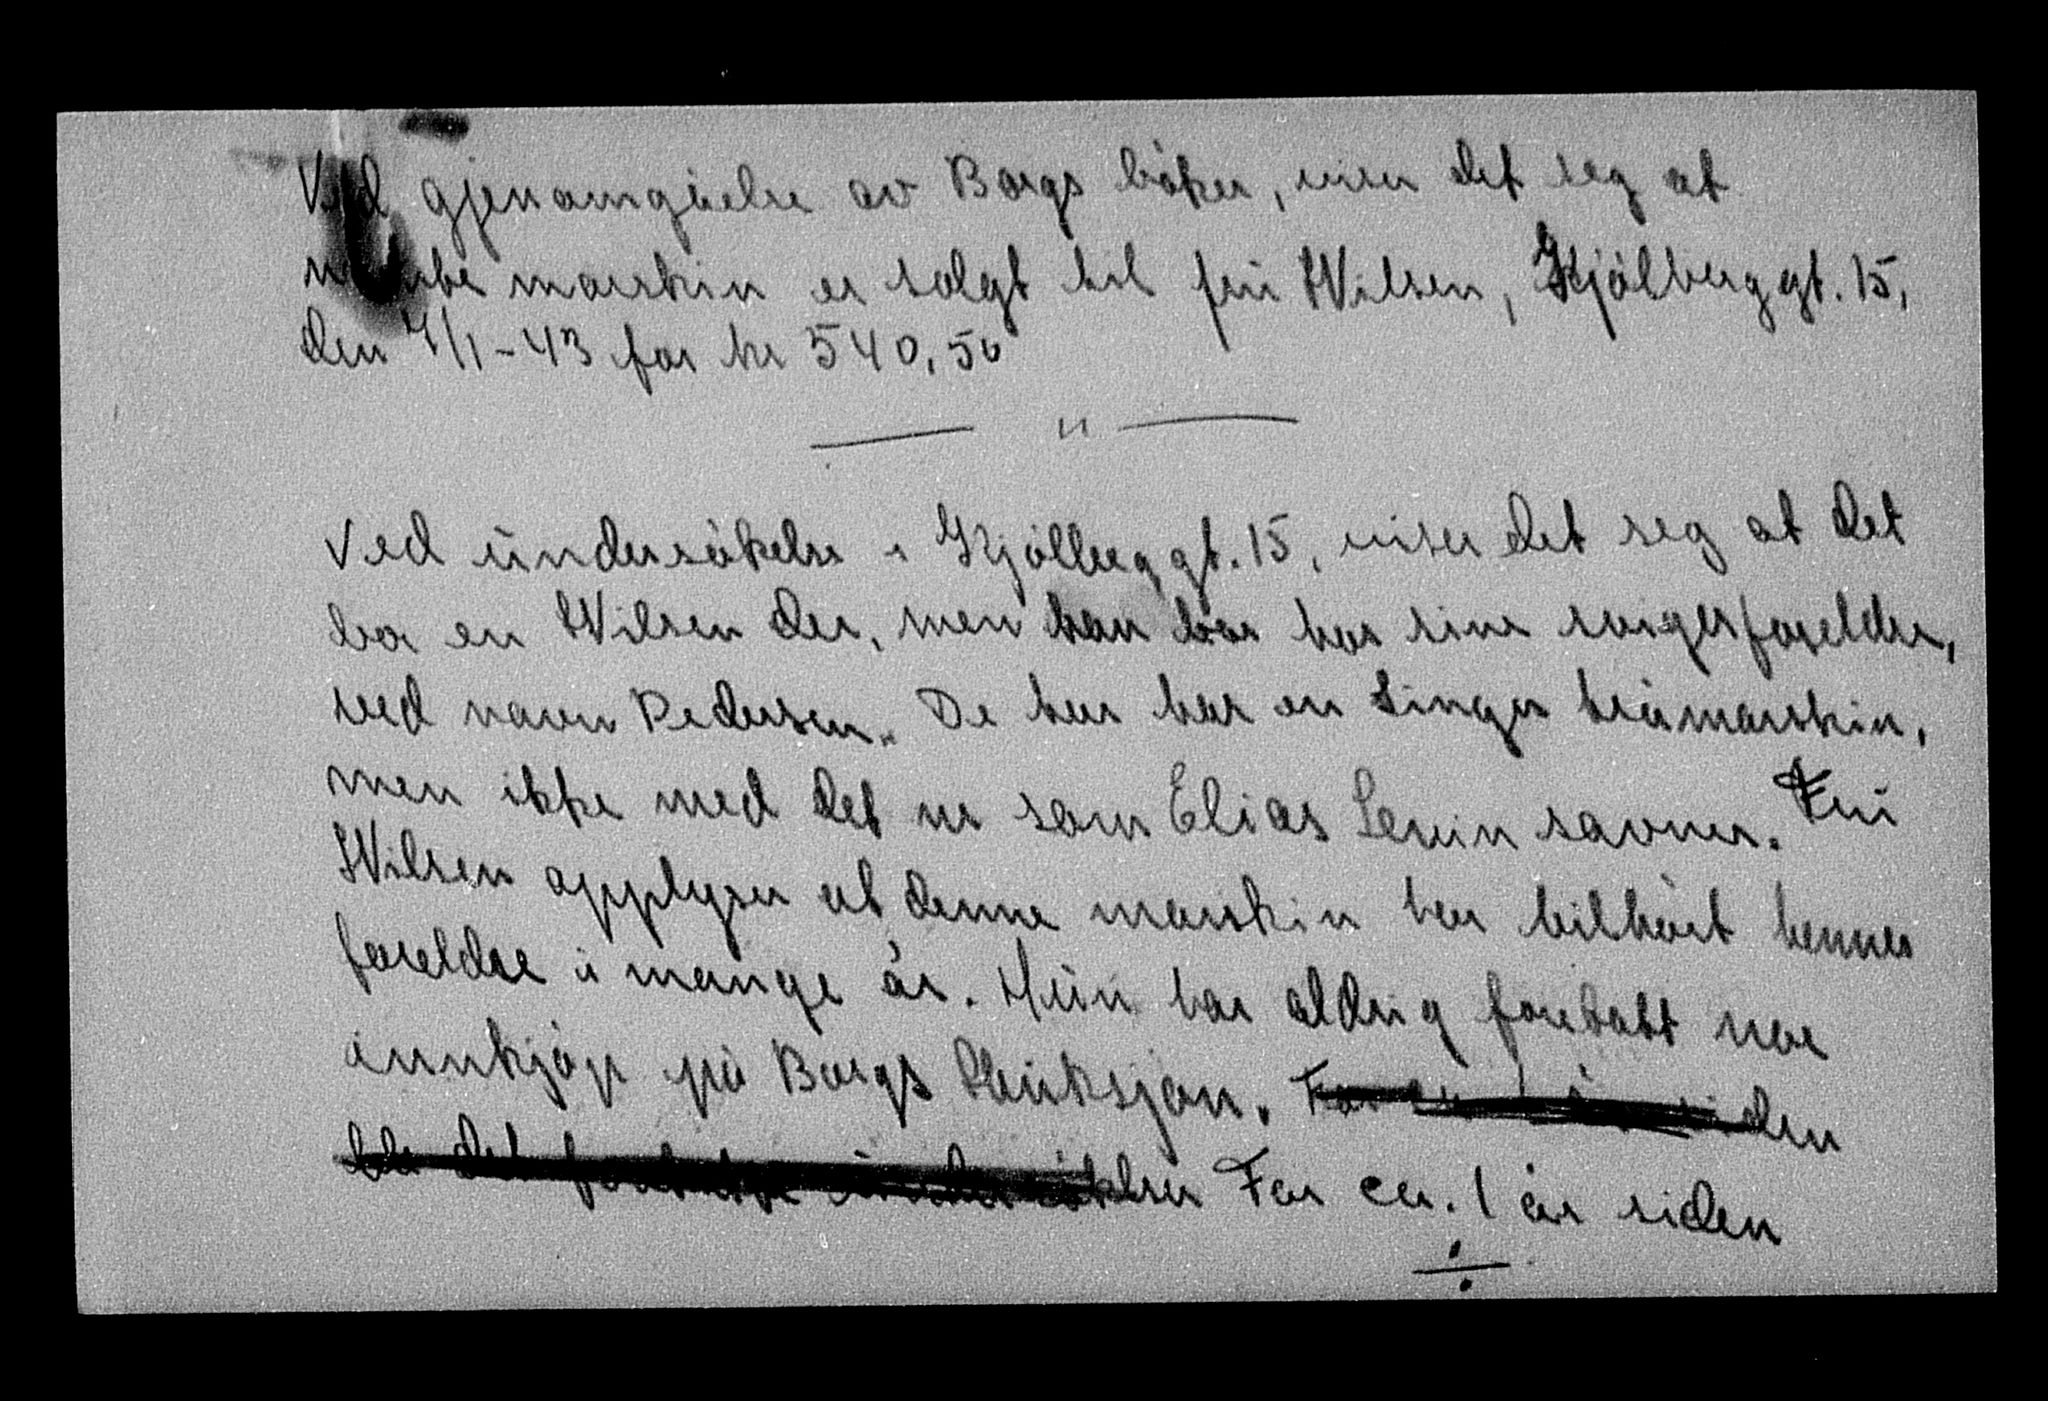 Ved gjenomgåelse av Borgs bøker, viser det seg at
maskin er solgt til frü Wilsen, Kjølberggt. 15,
den 7/1-43 for kr 540,50
— " —
Ved ündersøkelse i Kjølberggt. 15, viser det seg at det
bor en Wilsen der, men han bor hos sine svigerforeldre,
ved navn Pedersen. De her har en Singer symaskin,
men ikke med det nr som Elias Levin savner. Frü
Wilsen opplyser at denne maskin har tilhørt hennes
foreldre i mange år. Hün har aldrig foretatt noe
innkjøp på Borgs Aüksjon. siden
ble det Før ca. 1 år siden
÷